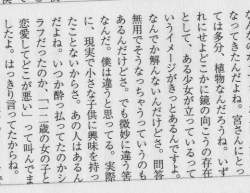 なってきたんだよね。宮さんにとっ
ては多分、植物なんだろうね。いず
れにせよどこかに鏡の向こうの存在
として、ある少女が立っているって
いうイメージがきっとあるんですよ。
なんでか解んないんだけどさ。問答
無用でそうなっちゃうっていうのも
あるんだけどさ。でも微妙に違う筈
なんだ。僕は違うと思ってる。実際
に、現実で小さな子供に興味を持っ
たことないからさ。あの人はあるん
だよね。いつか酔っ払ってたのかシ
ラフだったのか、「十二歳の女の子と
恋愛してどこが悪い」って叫んでま
したよ。はっきり言ってたからね。